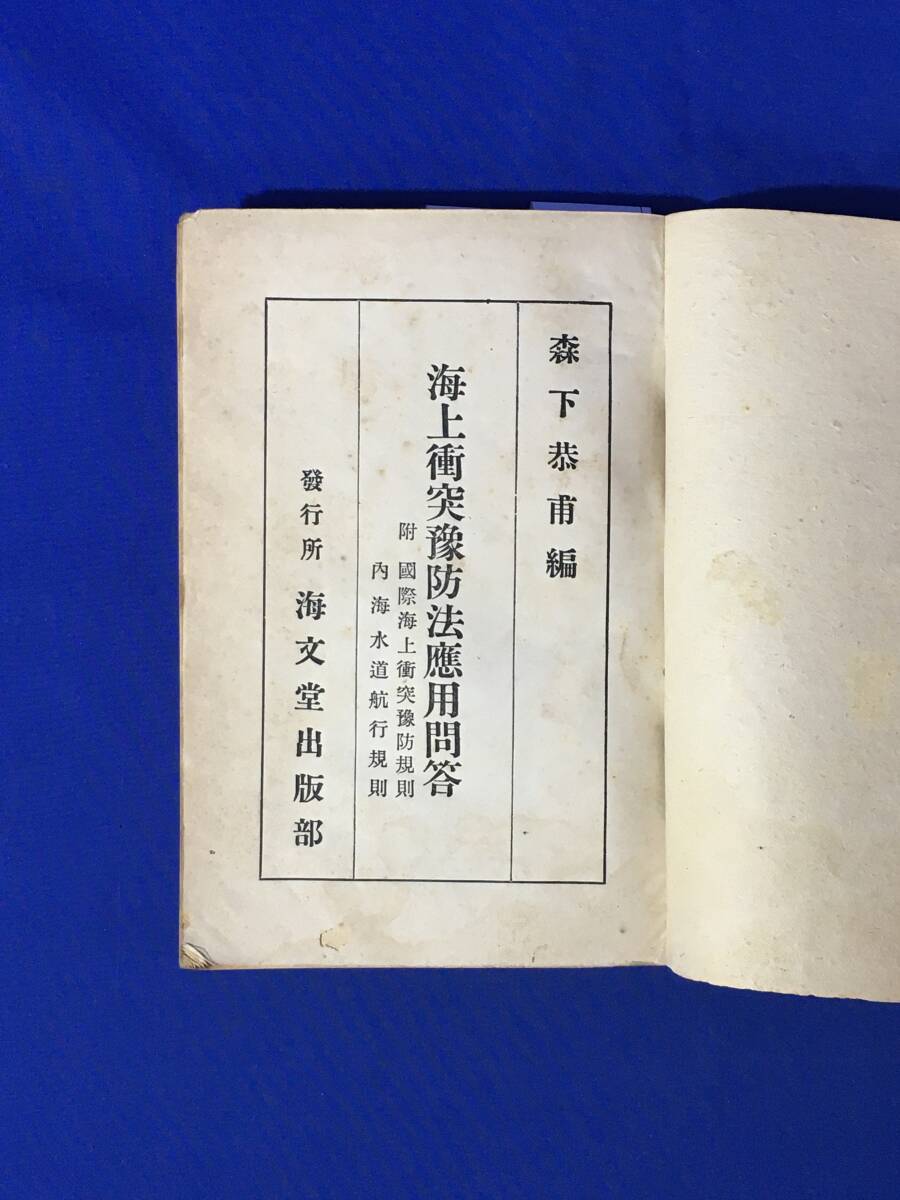 森下恭甫編
海上衝突豫防法應用問答
附 國際海上衝突豫防規則
內海水道航行規則
發行所 海文堂出版部